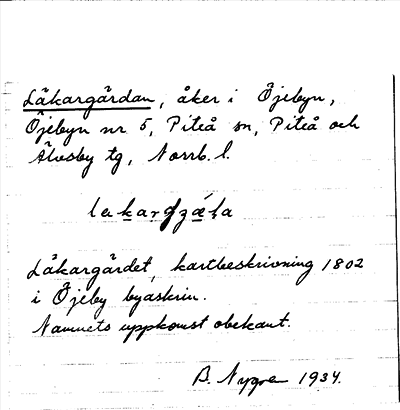 Läkargärdan, åker i Öjebyn,
Öjebyn nr 5, Piteå sn, Piteå och
Älvsby tg, Norrb. l.
Läkargärdet, kartbeskrivning 1802
i Öjeby byaskrin.
Namnets uppkomst obekant.
B. Nygren 1934.